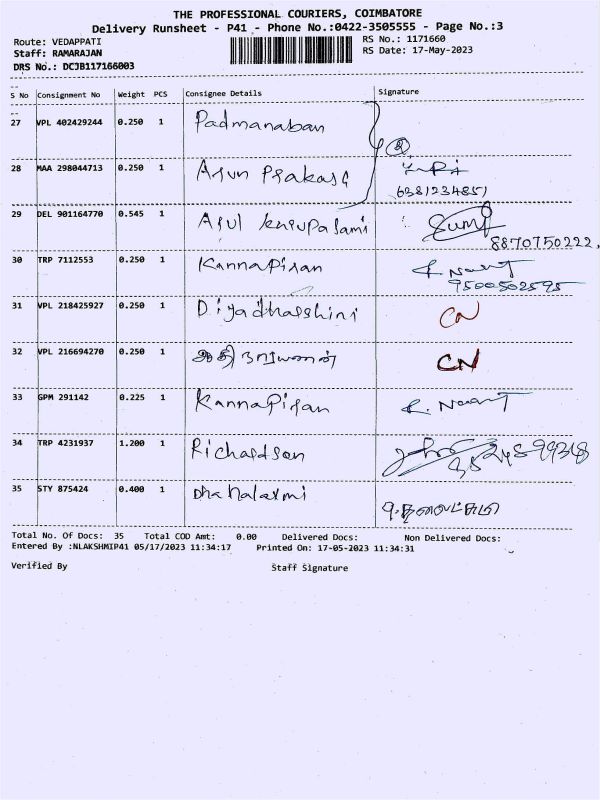 THE PROFESSIONAL COURIERS, COIMBATORE
Delivery Runsheet - P41 - Phone No.:0422-3505555 - Page No.:3
Route: VEDAPPATI RS No.: 1171660
Staff: RAMARAJAN RS Date: 17-May-2023
DRS No.: DCJB117166003
S No Consignment No Weight PCS Consignee Details Signature
27 VPL 402429244 0.250 1 Padmanaban
28 MAA 298044713 0.250 1 Arun Prakash
6381234851
29 DEL 901164770 0.545 1 Arul
8870750222,
30 TRP 7112553 0.250 1 Kannapiran
9500502595
31 VPL 218425927 0.250 1 Diyadharshini CN
32 VPL 216694270 0.250 1 ஆதி நாராயணன் CN
33 GPM 291142 0.225 1 Kannapiran
34 TRP 4231937 1.200 1 Richardson
35 STY 875424 0.400 1 Dhanalaxmi
Total No. Of Docs: 35 Total COD Amt: 0.00 Delivered Docs: Non Delivered Docs:
Entered By :NLAKSHMIP41 05/17/2023 11:34:17 Printed On: 17-05-2023 11:34:31
Verified By Staff Signature